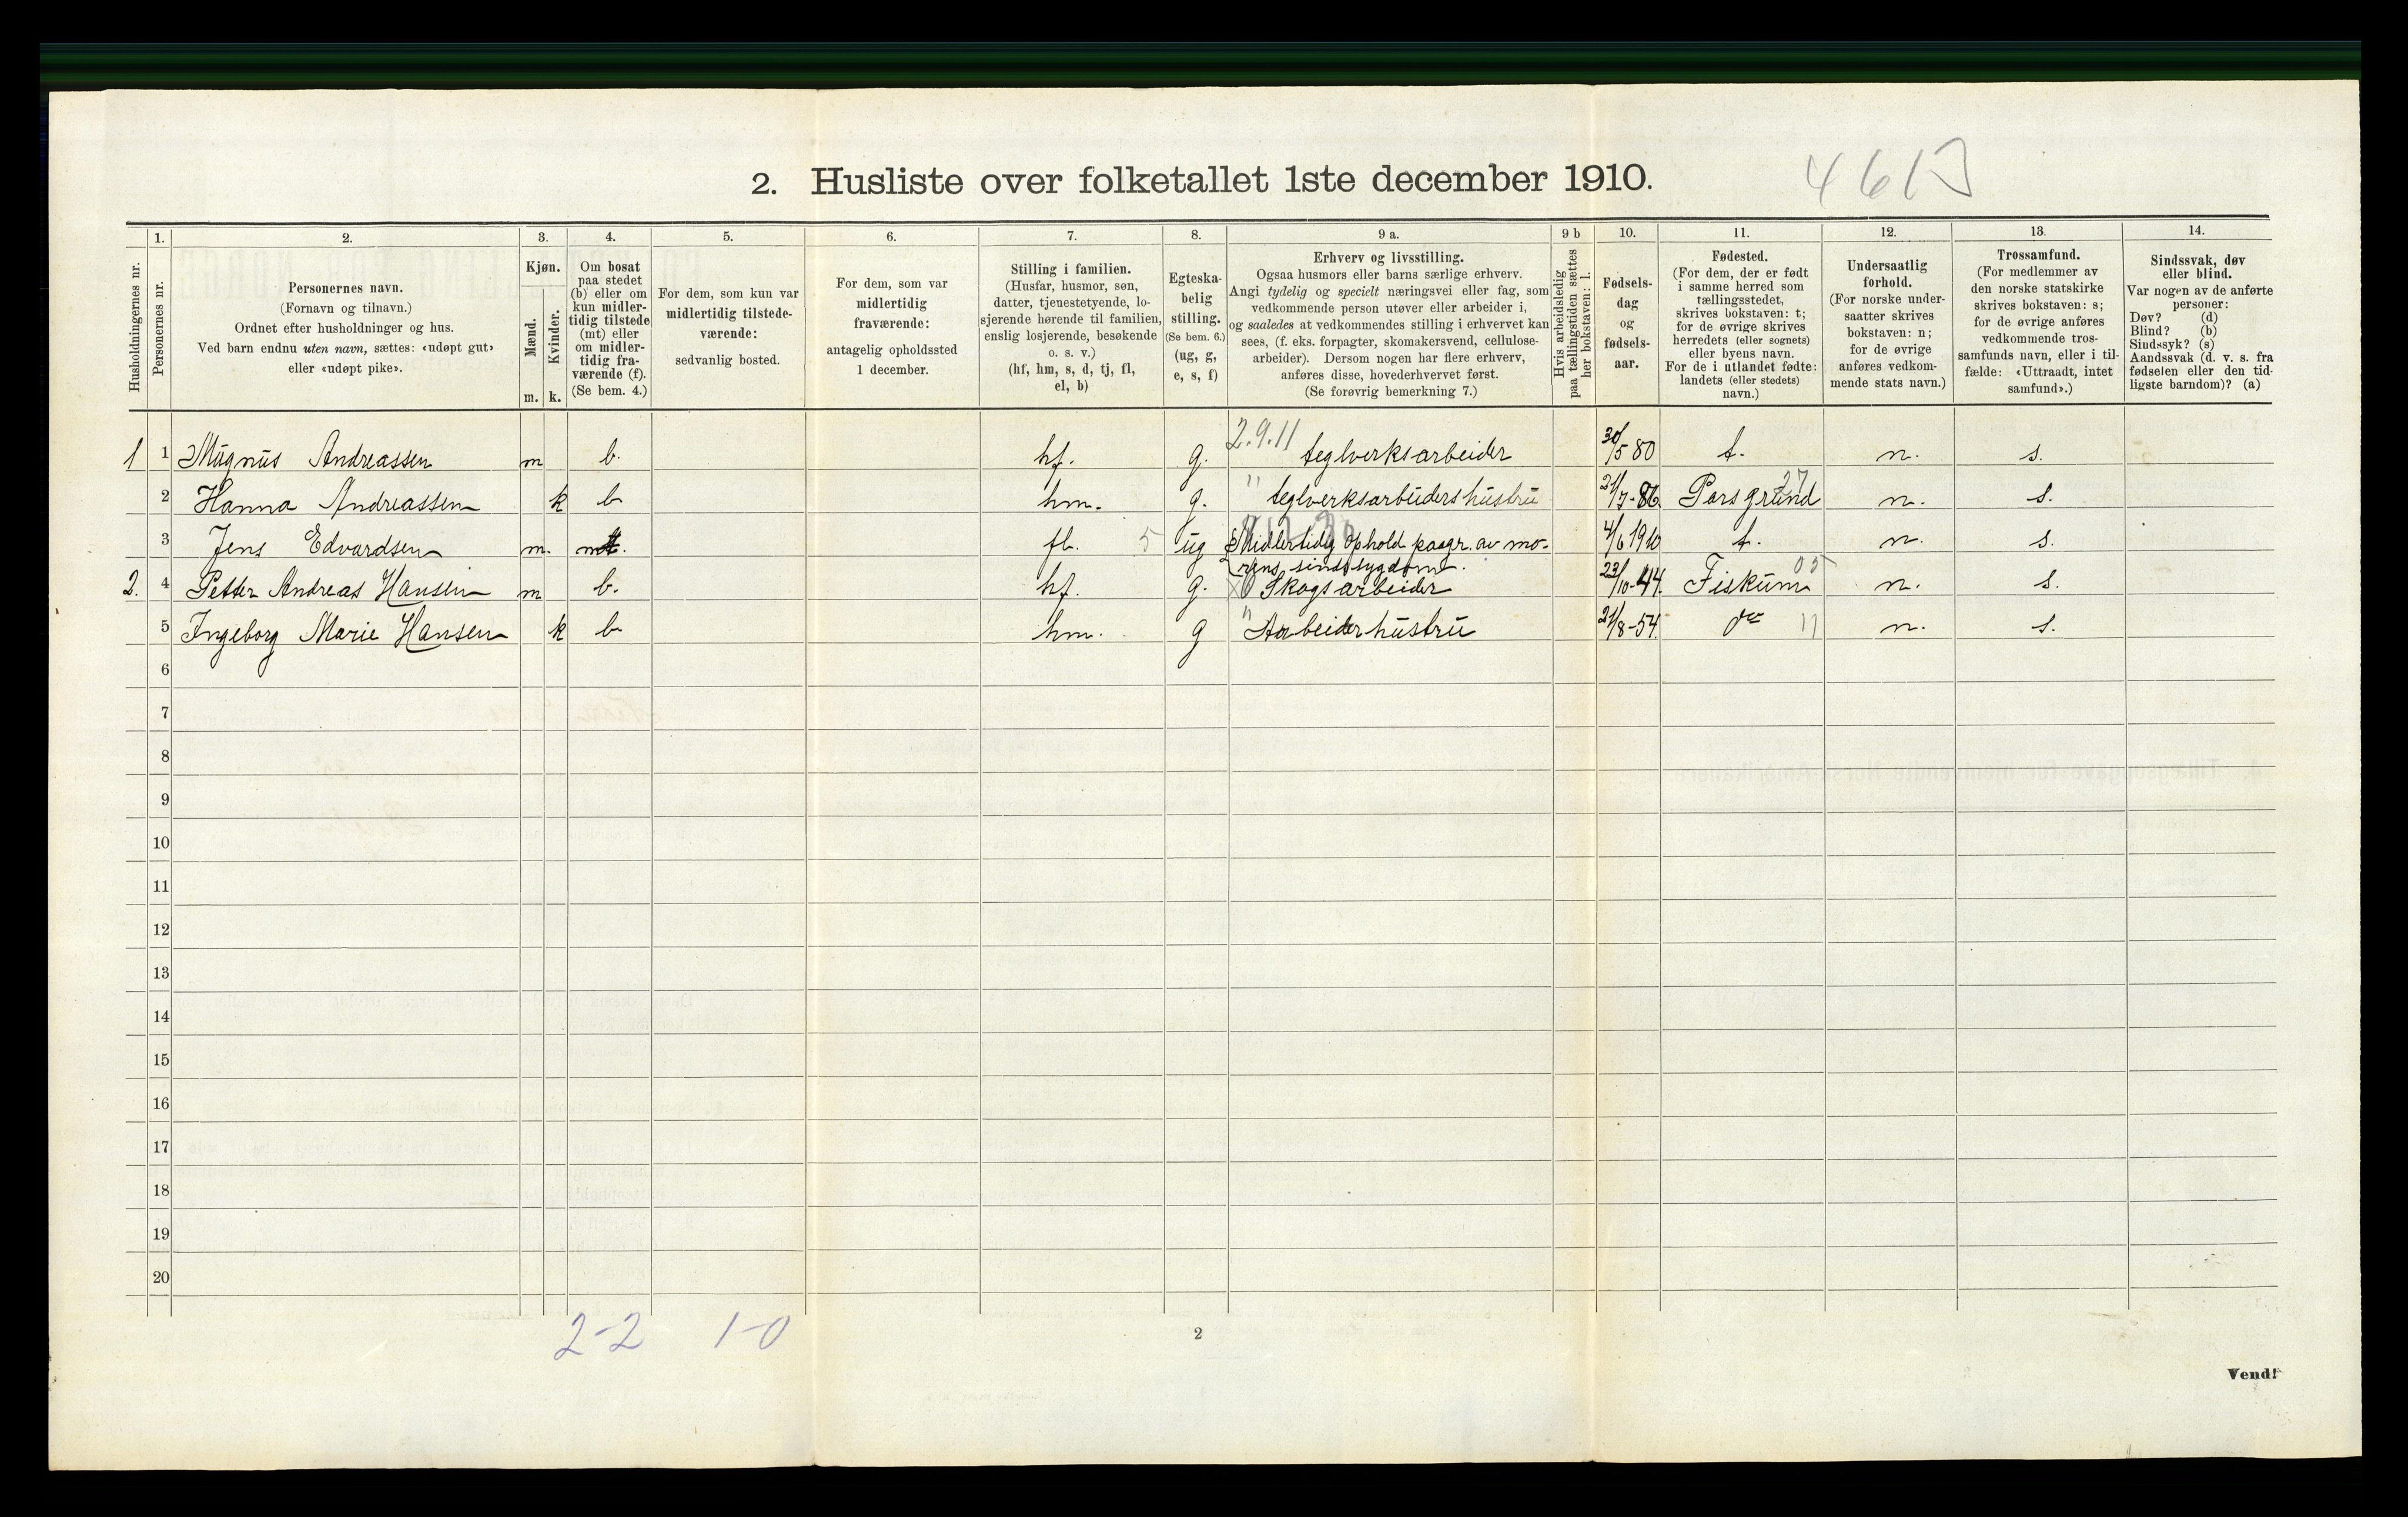 2. Husliste over folketallet 1ste december 1910.
Husholdningernes nr.
1.
Personernes nr.
2.
Personernes navn.
(Fornavn og tilnavn.)
Ordnet efter husholdninger og hus.
Ved barn endnu uten navn, sættes: «udøpt gut»
eller «udøpt pike».
3.
Kjøn.
Mænd.
Kvinder.
m. k.
4.
Om bosat
paa stedet
(b) eller om
kun midler-
tidig tilstede
(mt) eller
om midler-
tidig fra-
værende (f).
(Se bem. 4.)
5.
For dem, som kun var
midlertidig tilstede-
værende:
sedvanlig bosted.
6.
For dem, som var
midlertidig
fraværende:
antagelig opholdssted
1 december.
7.
Stilling i familien.
(Husfar, husmor, søn,
datter, tjenestetyende, lo-
sjerende hørende til familien,
enslig losjerende, besøkende
o. s. v.)
(hf, hm, s, d, tj, fl,
el, b)
8.
Egteska-
belig
stilling.
(Se bem. 6.)
(ug, g,
e, s, f)
9 a.
Erhverv og livsstilling.
Ogsaa husmors eller barns særlige erhverv.
Angi tydelig og specielt næringsvei eller fag, som
vedkommende person utøver eller arbeider i,
og saaledes at vedkommendes stilling i erhvervet kan
sees, (f. eks. forpagter, skomakersvend, cellulose-
arbeider). Dersom nogen har flere erhverv,
anføres disse, hovederhvervet først.
(Se forøvrig bemerkning 7.)
9 b
Hvis arbeidsledig
paa tællingstiden sættes
her bokstaven: l.
10.
Fødsels-
dag
og
fødsels-
aar.
11.
Fødested.
(For dem, der er født
i samme herred som
tællingsstedet,
skrives bokstaven: t;
for de øvrige skrives
herredets (eller sognets)
eller byens navn.
For de i utlandet fødte:
landets (eller stedets)
navn.)
12.
Undersaatlig
forhold.
(For norske under-
saatter skrives
bokstaven: n;
for de øvrige
anføres vedkom-
mende stats navn.)
13.
Trossamfund.
(For medlemmer av
den norske statskirke
skrives bokstaven: s;
for de øvrige anføres
vedkommende tros-
samfunds navn, eller i til-
fælde: «Uttraadt, intet
samfund».)
14.
Sindssvak, døv
eller blind.
Var nogen av de anførte
personer:
Døv? (d)
Blind? (b)
Sindssyk? (s)
Aandssvak (d. v. s. fra
fødselen eller den tid-
ligste barndom)? (a)
2.9.11
1 1 Magnus Andreassen m b. hf. g. teglverksarbeider 30/5 80 t. n. s.
2 Hanna Andreassen k b hm. g. " teglverksarbeiders hustru 21/7-86. Porsgrund 27 n. s.
3 Jens Edvardsen m. mt. fl. 5 ug Midlertidig ophold paagr. av mo- 4/6 1910 t. n. s.
rens sindssygdom.
2. 4 Petter Andreas Hansen m b. hf. g. Skogsarbeider 23/10-44. Fiskum 05 n. s.
5 Ingeborg Marie Hansen k b hm. g " Arbeiderhustru 21/8-54. do 11 n. s.
6
7
8
9
10
11
12
13
14
15
16
17
18
19
20
2-2 1-0
2
Vend!